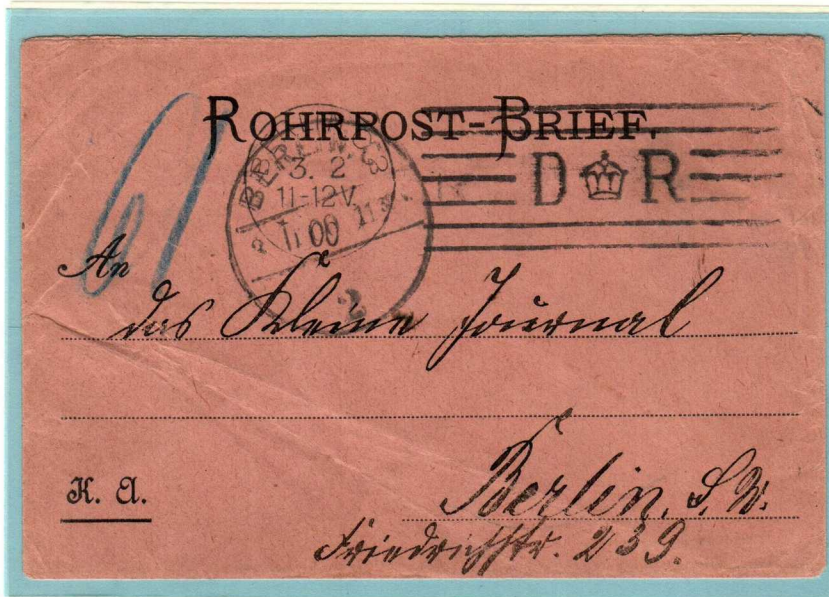 61
ROHRPOST-BRIEF.
BERLIN, C
3. 2
11-12V.
00
D R
An
das Kleine Journal
K. A.
Berlin. S. W.
Friedrichstr. 239.